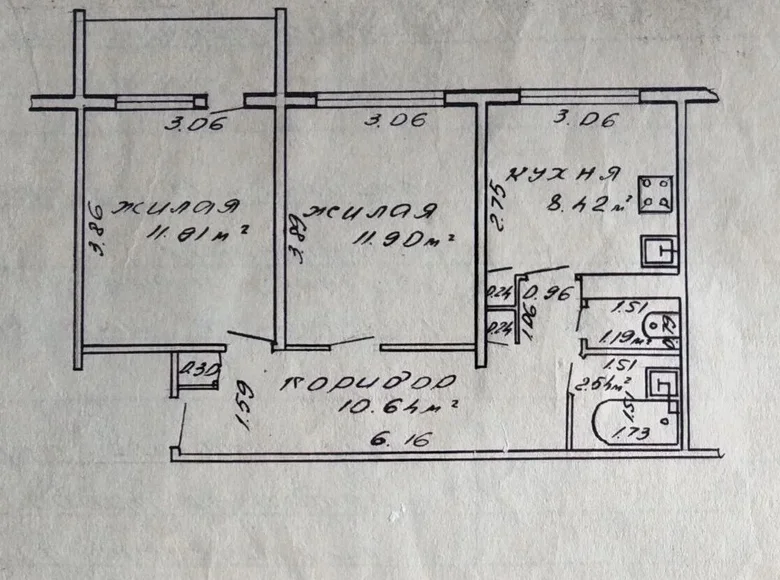 3.06
3.06
3.06
3.86
жилая
11.81 м²
3.89
жилая
11.90 м²
2.75
кухня
8.42 м²
0.24
0.96
0.24
1.06
1.51
1.19 м²
0.79
0.30
1.59
коридор
10.64 м²
6.16
1.51
2.54 м²
1.51
1.73